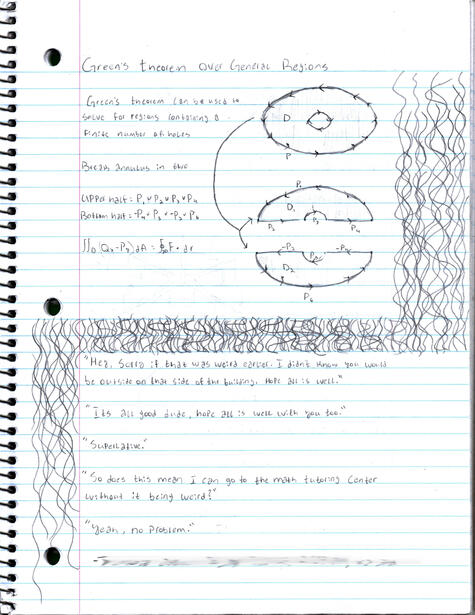 Green's theorem Over General Regions
Green's theorem can be used to
solve for regions containing a
finite number of holes
D
P
Break annulus in two
Upper half = P₁ ∪ P₂ ∪ P₃ ∪ P₄
Bottom half = -P₄ ∪ P₅ ∪ -P₂ ∪ P₆
P₁
D₁
P₂
P₃
P₄
∬_D (Qₓ-P_y) dA = ∮_∂D F • dr
-P₂
P₅
-P₄
D₂
P₆
"Hey, Sorry if that was weird earlier. I didn't know you would
be outside on that side of the building. Hope all is well."
"Its all good dude, hope all is well with you too."
"Superlative."
"So does this mean I can go to the math tutoring center
without it being weird?"
"Yeah, no problem."